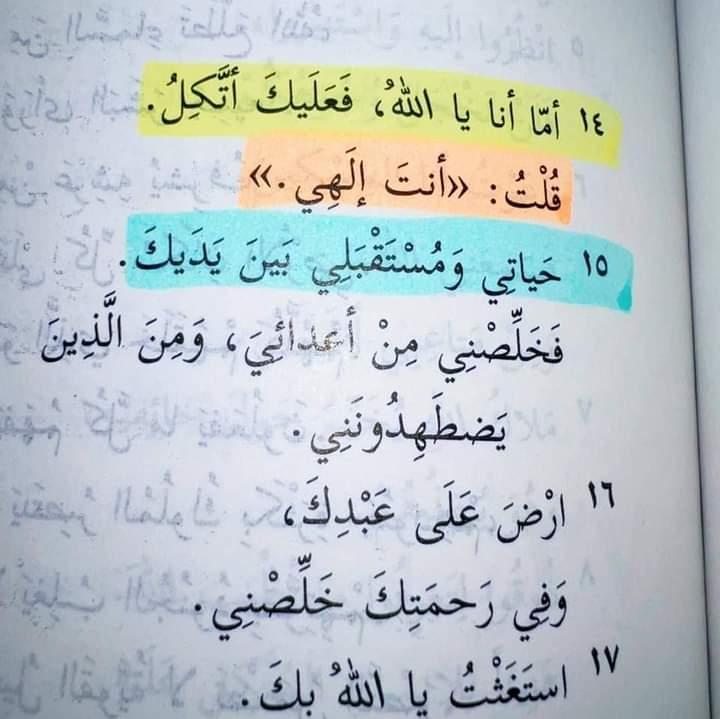 ١٤ أمّا أنا يا اللهُ، فَعَلَيكَ أتَّكِلُ.
قُلْتُ: «أنتَ إلَهِي.»
١٥ حَياتِي وَمُسْتَقْبَلِي بَينَ يَدَيكَ.
فَخَلِّصْنِي مِنْ أعدائِيَ، وَمِنَ الَّذِينَ
يَضطَهِدُونَنِي.
١٦ ارْضَ عَلَى عَبْدِكَ،
وَفِي رَحمَتِكَ خَلِّصْنِي.
١٧ استَغَثْتُ يا اللهُ بِكَ.